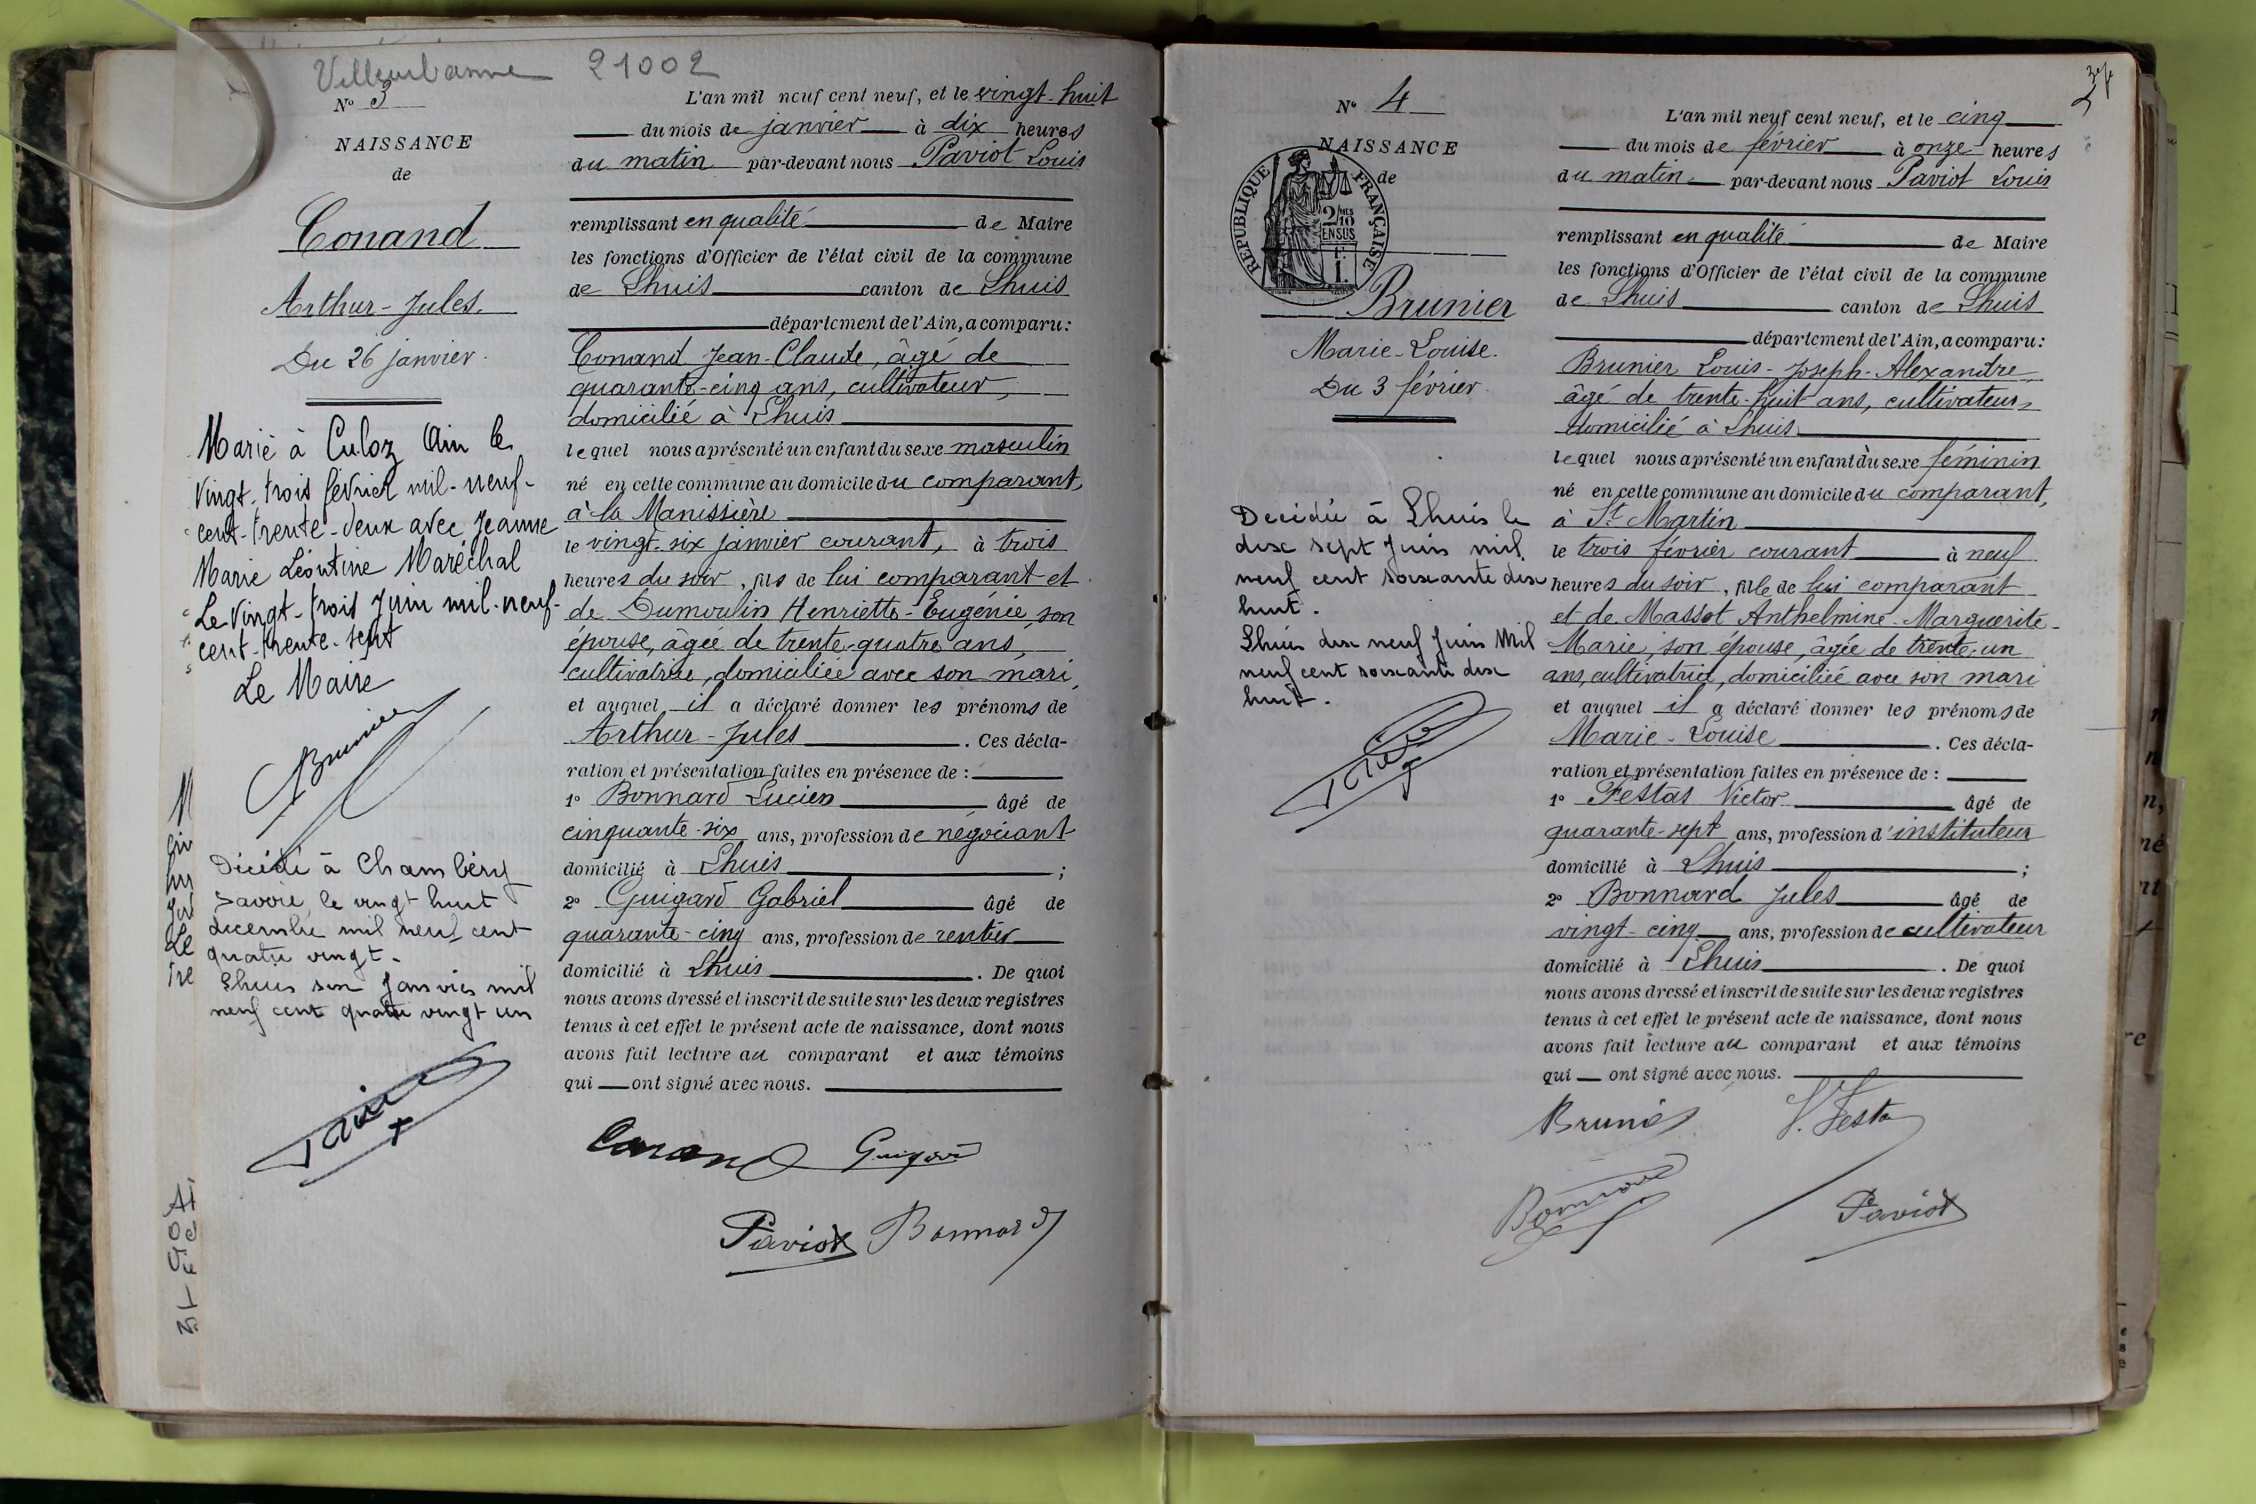 Villeurbanne 21002
N° 3
NAISSANCE
de
Conand
Arthur-Jules.
Du 26 janvier.
Marié à Culoz Ain le
vingt-trois février mil-neuf-
cent-trente-deux avec Jeanne
Marie Léontine Maréchal
Le Vingt-trois Juin mil-neuf-
cent-trente-sept
Le Maire
Brunier
Décédé à Chambéry
Savoie le vingt huit
décembre mil neuf cent
quatre vingt.
Lhuis six Janvier mil
neuf cent quatre vingt un
L'an mil neuf cent neuf, et le vingt-huit
du mois de janvier à dix heures
du matin par-devant nous Paviot Louis
remplissant en qualité de Maire
les fonctions d'Officier de l'état civil de la commune
de Lhuis canton de Lhuis
département de l'Ain, a comparu:
Conand Jean-Claude, âgé de
quarante-cinq ans, cultivateur,
domicilié à Lhuis
lequel nous a présenté un enfant du sexe masculin
né en cette commune au domicile du comparant,
à la Manissière
le vingt-six janvier courant, à trois
heures du soir, fils de lui comparant et
de Dumoulin Henriette-Eugénie, son
épouse, âgée de trente-quatre ans,
cultivatrice, domiciliée avec son mari,
et auquel il a déclaré donner les prénoms de
Arthur-Jules. Ces décla-
ration et présentation faites en présence de :
1° Bonnard Lucien âgé de
cinquante-six ans, profession de négociant
domicilié à Lhuis ;
2° Guigard Gabriel âgé de
quarante-cinq ans, profession de rentier
domicilié à Lhuis. De quoi
nous avons dressé et inscrit de suite sur les deux registres
tenus à cet effet le présent acte de naissance, dont nous
avons fait lecture au comparant et aux témoins
qui ont signé avec nous.
Conand Guigard
Paviot Bonnard
N° 4
NAISSANCE
de
RÉPUBLIQUE FRANÇAISE
2/10 EN SUS
1 F.
Brunier
Marie-Louise.
Du 3 février.
Decidée à Lhuis le
dix sept Juin mil
neuf cent soixante dix
huit.
Lhuis dix neuf Juin Mil
neuf cent soixante dix
huit.
L'an mil neuf cent neuf, et le cinq
du mois de février à onze heures
du matin par-devant nous Paviot Louis
remplissant en qualité de Maire
les fonctions d'Officier de l'état civil de la commune
de Lhuis canton de Lhuis
département de l'Ain, a comparu:
Brunier Louis-Joseph-Alexandre
âgé de trente-huit ans, cultivateur,
domicilié à Lhuis
lequel nous a présenté un enfant du sexe féminin
né en cette commune au domicile du comparant,
à St Martin
le trois février courant à neuf
heures du soir, fille de lui comparant
et de Massot Anthelmine-Marguerite-
Marie, son épouse, âgée de trente-un
ans, cultivatrice, domiciliée avec son mari
et auquel il a déclaré donner les prénoms de
Marie-Louise. Ces décla-
ration et présentation faites en présence de :
1° Festas Victor âgé de
quarante-sept ans, profession d'instituteur
domicilié à Lhuis ;
2° Bonnard Jules âgé de
vingt-cinq ans, profession de cultivateur
domicilié à Lhuis. De quoi
nous avons dressé et inscrit de suite sur les deux registres
tenus à cet effet le présent acte de naissance, dont nous
avons fait lecture au comparant et aux témoins
qui ont signé avec nous.
Brunier V. Festas
Bonnard Paviot